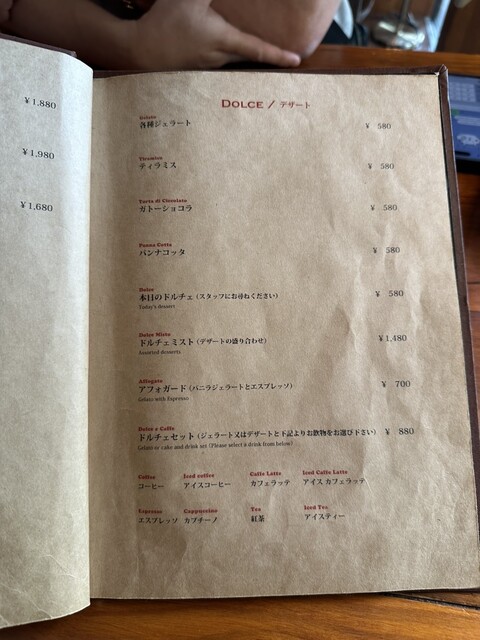 ¥1,880
¥1,980
¥1,680
DOLCE / デザート
Gelato
各種ジェラート ¥ 580
Tiramisu
ティラミス ¥ 580
Torta di Cioccolato
ガトーショコラ ¥ 580
Panna Cotta
パンナコッタ ¥ 580
Dolce
本日のドルチェ (スタッフにお尋ねください) ¥ 580
Today's dessert
Dolce Misto
ドルチェミスト (デザートの盛り合わせ) ¥1,480
Assorted desserts
Affogato
アフォガード (バニラジェラートとエスプレッソ) ¥ 700
Gelato with Espresso
Dolce e Caffe
ドルチェセット (ジェラート又はデザートと下記よりお飲物をお選び下さい) ¥ 880
Gelato or cake and drink set (Please select a drink from below)
Coffee Iced coffee Caffe Latte Iced Caffe Latte
コーヒー アイスコーヒー カフェラッテ アイス カフェラッテ
Espresso Cappuccino Tea Iced Tea
エスプレッソ カプチーノ 紅茶 アイスティー